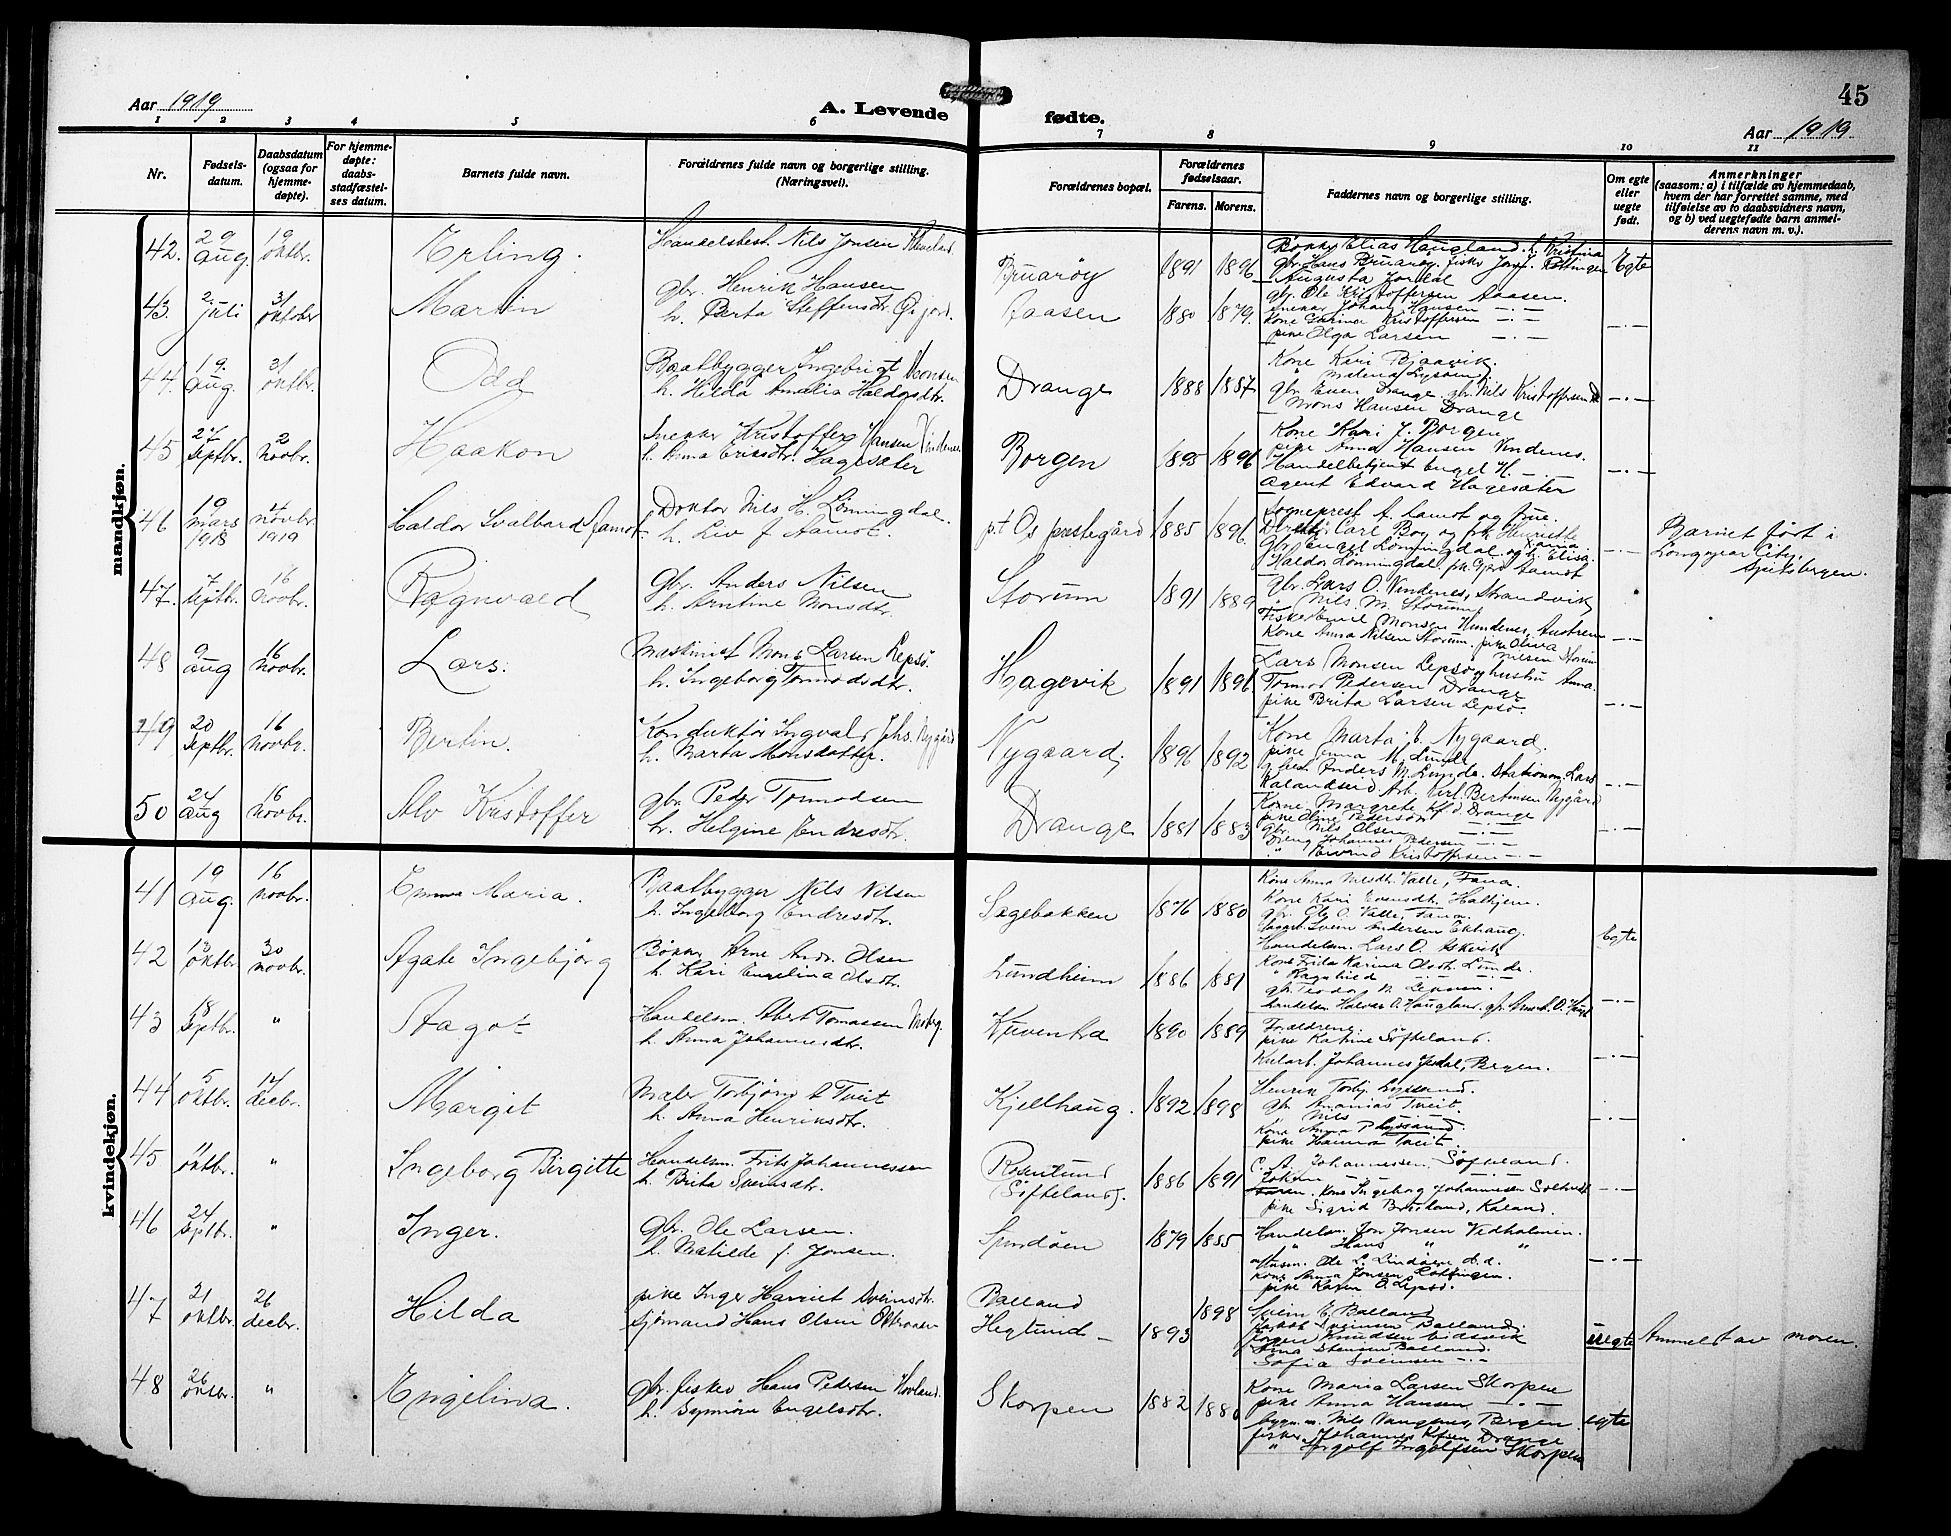 Aar 1919
A. Levende fødte.
45
Aar 1919
1 2 3 4 5 6 7 8 9 10 11
Nr.
Fødselsdatum.
Daabsdatum (ogsaa for hjemmedøpte).
For hjemmedøpte: daabsstadfæstelses datum.
Barnets fulde navn.
Forældrenes fulde navn og borgerlige stilling. (Næringsvei).
Forældrenes bopæl.
Forældrenes fødselsaar.
Farens. Morens.
Faddernes navn og borgerlige stilling.
Om egte eller uegte født.
Anmerkninger
(saasom: a) i tilfælde av hjemmedaab, hvem der har forrettet samme, med tilføielse av to daabsvidners navn, og b) ved uegtefødte barn anmelderens navn m. v.).
mandkjøn.
42. 29 aug. 19 oktbr. Erling. Handelsbest. Nils Jonsen
Bruarøy 1891 1896 Elias Haugland. Egte
gbr. Hans Bruarøy. fisker
Augusta
43. 2 juli 31 oktober Martin gbr. Henrik Hansen
h. Berta Steffensdtr. Gjerd.
Aasen 1880 1879. gbr. Ole Kristoffersen Aasen.
snekker Johan Hansen —"—
Kone Karina Kristoffersen —"—
pike Olga Larsen —"—
44. 19. aug. 31 oktbr. Odd Baatbygger Ingebrigt Monsen
h. Hilda Amalia Haldorsdtr.
Drange 1888 1887 Kone Kari Bjaavik.
" Malena Lysøen
gbr. Even Drange. gbr. Nils Kristoffersen D.
Mons Hansen Drange
45 27 septbr. 2 novbr. Haakon Snekker Kristoffer Hansen Vindenes
h. Anna Eriksdtr. Hagesæter
Borgen 1895 1896 Kone Kari J. Borgen
pike Anna Hansen Vindenes.
Handelbetjent Engel H.
Agent Edvard Hagesæter
46 19 mars 1918 4 novbr 1919 Haldor Svalbard Aamot Doktor Nils H. Lønningdal.
h. Liv f. Aamot.
p.t Os prestegård 1885 1896. Sogneprest A. Aamot og frue.
Carl Bog og frk. Henriette
gbr. Engel Lønningdal og h. Elisa.
Haldor Lønningdal, frk. Aamot
Barnet født i Longyear City, Spitsbergen.
47. 7 septbr. 16 novbr. Ragnvald gbr. Anders Nilsen
h. Arntine Monsdtr.
Storum 1891 1889 gbr. Lars O. Vindenes, Strandvik
" Nils M. Storum
Fisker Emil Monsen Vindenes, Austren
Kone Anna Nilsen Storum. pike Oliva Nilsen Storum
48 9 aug 16 novbr. Lars. Maskinist Mons Larsen Lepsø.
h. Ingeborg Tormodsdtr.
Hagevik 1891 1896 Lars Monsen Lepsø og hustru Anna.
Tormod Pedersen Drange
pike Brita Larsen Lepsø.
49 20 septbr. 16 novbr. Bertin. Konduktør Ingvald Johs. Nygård
h. Marta Monsdatter.
Nygaard. 1896 1892 Kone Marta B. Nygaard.
pike Anna M. Lunde
Anders M. Lunde. Stationsm. Lars
Kalandseid. Arb. Karl Bertinsen Nygård
50 24 aug 16 novbr. Alv Kristoffer gbr Peder Tormodsen
h. Helgine Endresdtr.
Drange 1881 1883 Kone Margrete Kf.d. Drange
pike Oline Pedersen —"—
gbr. Nils Olsen —"—
Dreng Johannes Pedersen —"—
" Eivind Kristoffersen —"—
kvindekjøn.
41 19 aug. 16 novbr. Emma Maria. Baatbygger Nils Nilsen
h. Ingeborg Endresdtr.
Sagebakken 1876 1880 Kone Anna Nilsdtr. Valle, Fana.
Kone Kari Evensdtr. Haltjem.
gbr. Ole O. Valle, Fana.
Svein Andersen Ekhaug.
Handelsm. Lars O. Askvik
Egte
42 13 oktbr. 30 novbr. Agate Ingebjørg Bøkker Arne Andr. Olsen
h. Kari Engelina Olsdtr.
Lundheim 1886 1881 Kone Frida Karina Olsdtr. Lunde.
" Ragnhild —"—
gbr. Teodor M. Lepsøen.
handelsm. Halvor O. Haugland.
43 18 septbr. " Aagot Handelsm. Albert Tomassen Moberg
h. Anna Johannesdtr.
Kuventræ 1890 1889 Forældrene.
pike Katrine Søfteland.
Johannes Jedal, Bergen.
44 5 oktbr. 14 decbr. Margit Maler Torbjørn A Tveit
h. Anna Henriksdtr.
Kjellhaug. 1892 1898 Henrik Torbj. Lyssand.
gbr. Ananias Tveit.
" Nils
Kone Anna P Lyssand.
pike Hanna Tveit.
45 11 oktbr. " Ingeborg Birgitte Handelsm. Frits Johannessen
h. Brita Sveinsdtr.
Rosenlund (Søfteland). 1886 1891 C. A. Johannessen Søfteland.
Kone Ingeborg Johannesen Søltveit
pike Sigrid Brosland, Kaland.
46 24 septbr. " Inger. gbr. Ole Larsen.
h. Matilde f. Jonsen.
Spindøen 1879 1885 Handelsm. Jon Jonsen Vedholmen.
" Hans " "
Ole L. Lindøen d.d.
kone Anna Jonsen Røttingen.
pike Karen O. Lepsø.
47 21 oktbr. 26 decbr. Hilda pike Inger Harriet Sveinsdtr.
sjømand Hans Olsen
Balland 1898
Heglund — 1893
Svein E. Balland
Jakob Sveinsen Balland.
Jørgen Knudsen Eidsvik
Stensen Balland.
Sofia Svensen —"—
uegte Anmeldt av moren.
48 26 oktbr. " Engelina. gbr. fisker Hans Pedersen Hovland.
h. Synnøve Engelsdtr.
Skorpen 1882 1880 Kone Maria Larsen Skorpen
pike Anna Hansen —"—
Nils Vangsnes, Bergen.
fisker Johannes Drange
" Ingolf Ingolfsen Skorpen
egte